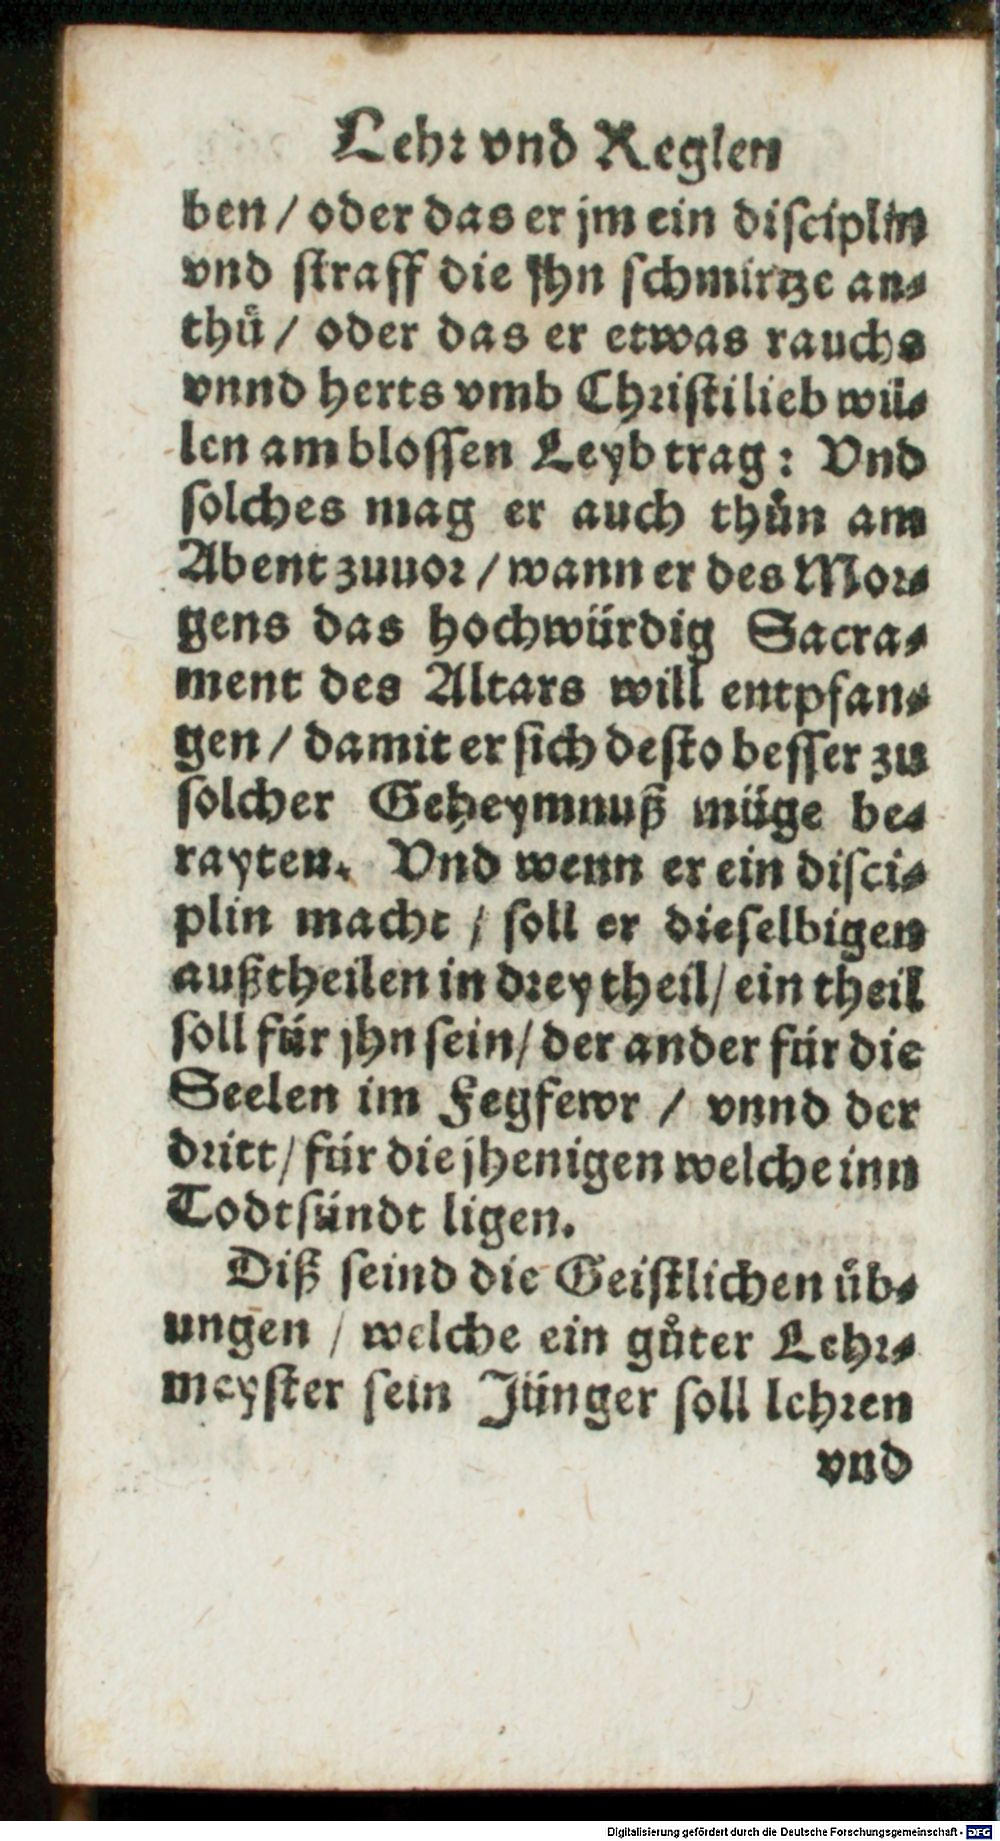 Lehr vnd Reglen
ben / oder das er jm ein disciplin
vnd straff die jhn schmirtze an⸗
thuͤ / oder das er etwas rauchs
vnnd herts vmb Christi lieb wil⸗
len am blossen Leyb trag: Vnd
solches mag er auch thuͦn am
Abent zuuor / wann er des Mor⸗
gens das hochwürdig Sacra⸗
ment des Altars will entpfan⸗
gen / damit er sich desto besser zu
solcher Geheymnuß müge be⸗
rayten. Vnd wenn er ein disci⸗
plin macht / soll er dieselbigen
außtheilen in drey theil / ein theil
soll für jhn sein / der ander für die
Seelen im Fegfewr / vnnd der
dritt / für die jhenigen welche inn
Todtsündt ligen.
Diß seind die Geistlichen uͤb⸗
ungen / welche ein guͦter Lehr⸗
meyster sein Jünger soll lehren
vnd
Digitalisierung gefördert durch die Deutsche Forschungsgemeinschaft - DFG